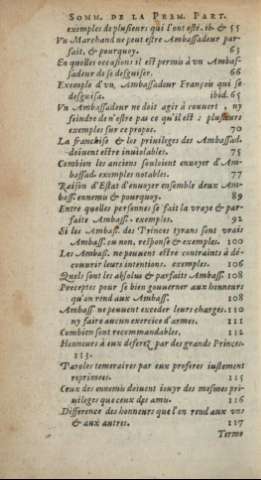 SOMM. DE LA PREM. PART.
exemples de plusieurs qui l'ont esté. ib. & 55
Vn Marchand ne peut estre Ambassadeur par-
fait, & pourquoy. 63
En quelles occasions il est permis à vn Ambas-
sadeur de se desguiser. 66
Exemple d'vn, Ambassadeur François qui se
desguisa. ibid. 65
Vn Ambassadeur ne doit agir à couuert, ny
feindre de n'estre pas ce qu'il est : plusieurs
exemples sur ce propos. 70
La franchise & les priuileges des Ambassad.
doiuent estre inuiolables. 75
Combien les anciens souloient enuoyer d'Am-
bassad. exemples notables. 77
Raison d'Estat d'enuoyer ensemble deux Am-
bass. ennemu & pourquoy. 89
Entre quelles personnes se fait la vraye & par-
faite Ambass. exemples. 92
Si les Ambass. des Princes tyrans sont vrais
Ambass. ou non, response & exemples. 100
Les Ambass. ne peuuent estre contraints à dé-
couurir leurs intentions. exemples. 106
Quels sont les absolus & parfaits Ambass. 108
Preceptes pour se bien gouuerner aux honneurs
qu'on rend aux Ambass. 108
Ambass. ne peuuent exceder leurs charges. 110
ny faire aucun exercice d'armes. 111
Combien sont recommandables. 112
Honneurs à eux deferez par des grands Princes.
113.
Paroles temeraires par eux proferes iustement
reprimees. 115
Ceux des ennemis doiuent iouyr des mesmes pri-
uileges que ceux des amu. 116
Difference des honneurs que l'on rend aux vns
& aux autres. 117
Terme